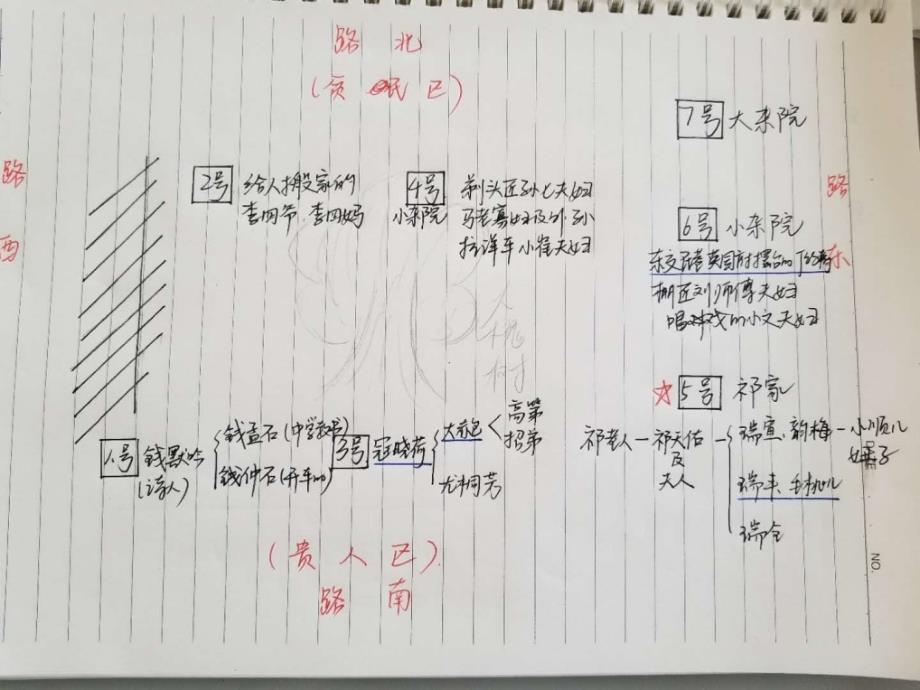 路北
(贫民区)
7号 大杂院
路西
2号 给人搬家的
李四爷.李四妈
4号 剃头匠孙七夫妇
小杂院 马老寡妇及外孙
拉洋车小崔夫妇
路东
6号 小杂院
东交民巷英国府摆台的丁约翰
棚匠刘师傅夫妇
唱戏的小文夫妇
大槐树
☆5号 祁家
1号 钱默吟
(诗人)
钱孟石(中学教书)
钱仲石(开车的)
3号 冠晓荷
大赤包
高第
招弟
尤桐芳
祁老人—祁天佑
及
夫人
瑞宣、韵梅—小顺儿
妞子
瑞丰、
瑞全
(贵人区)
路南
NO.